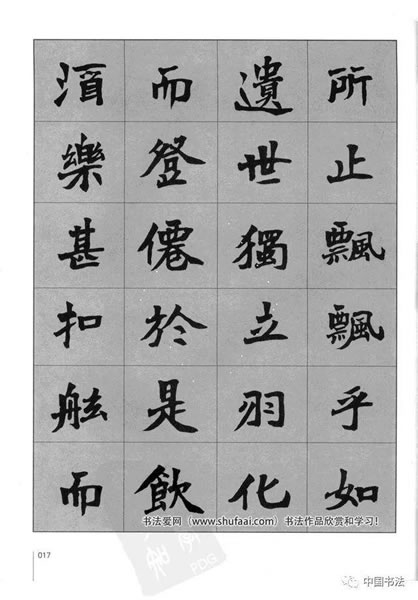 所止飄飄乎如
遺世獨立羽化
而登僊於是飲
湏樂甚扣舷而
书法爱网（www.shufaai.com）书法作品欣赏和学习！
017
PDG
中国书法